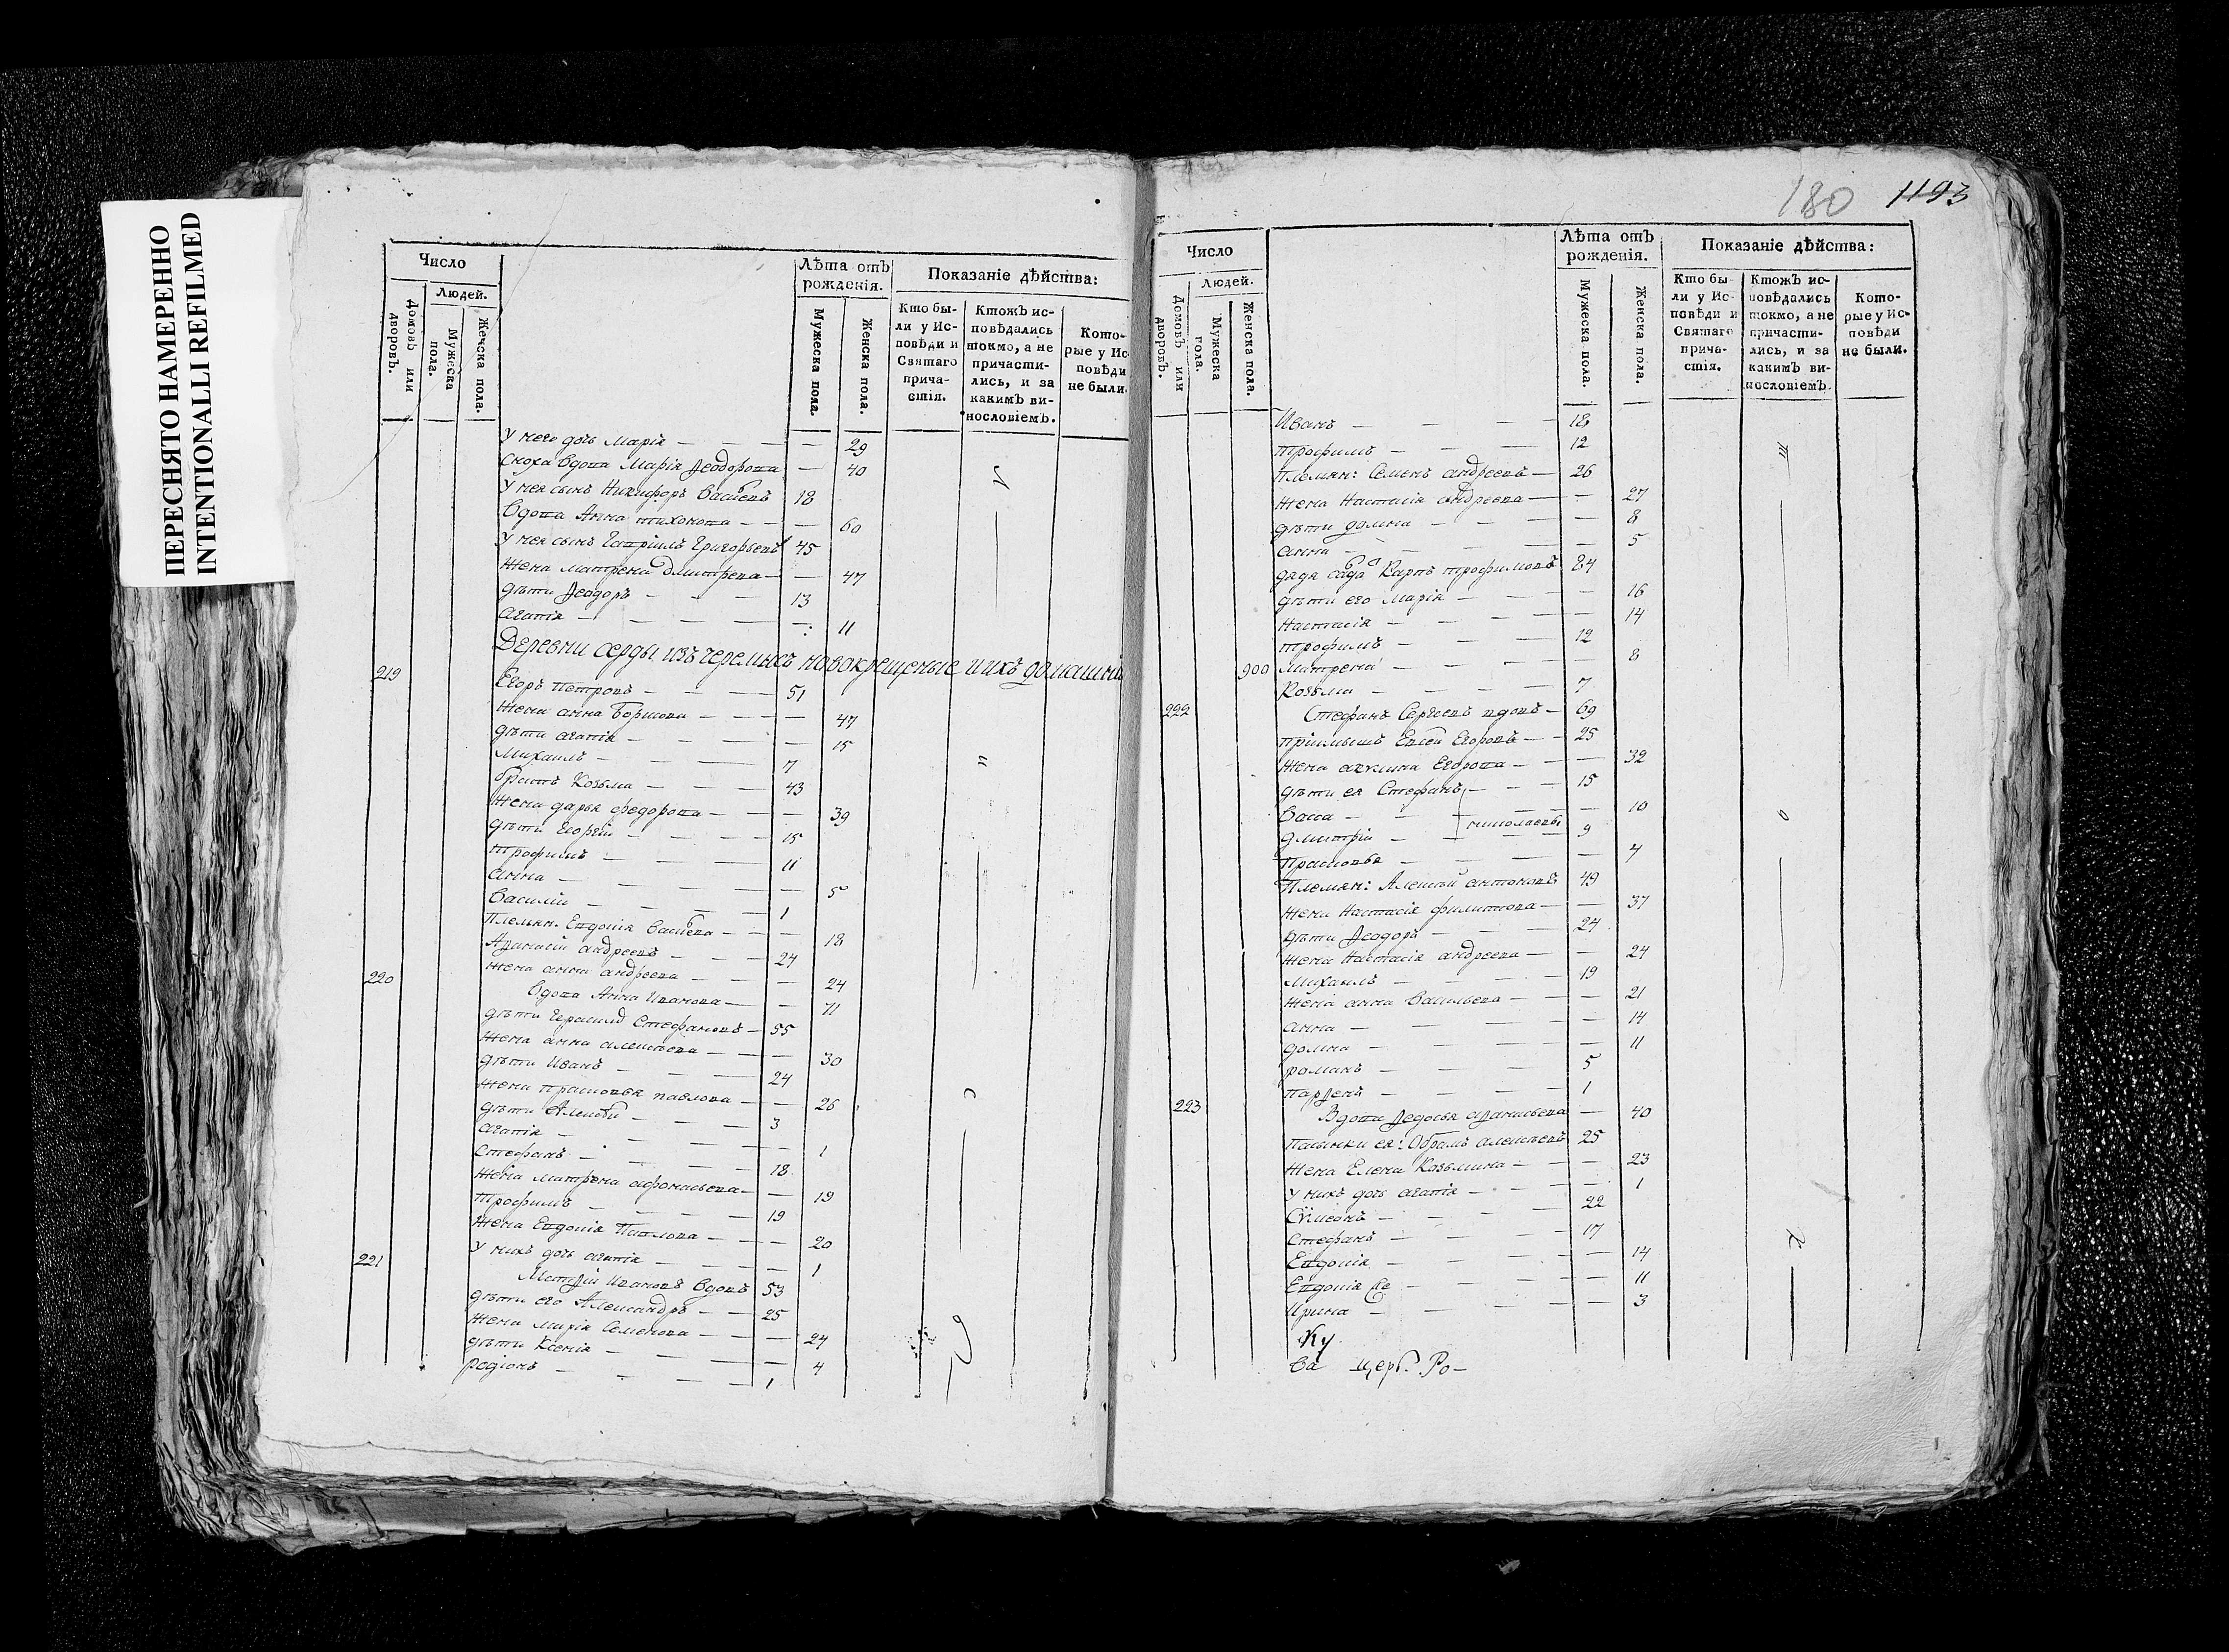 ПЕРЕСНЯТО НАМЕРЕННО
INTENTIONALLI REFILMED
Число
Лѣта отъ рожденія.
Показаніе дѣйства:
Людей.
Домовъ или дворовъ.
Мужеска пола.
Женска пола.
Мужеска пола.
Женска пола.
Кто были у Исповѣди и Святаго причастія.
Ктожъ исповѣдались токмо, а не причастились, и за какимъ винословіемъ.
Которые у Исповѣди не были.
У него дочь Марія — — — 29
Сноха вдова Марія Ѳеодорова — 40
У нея сынъ Никифоръ Васильевъ 18
Вдова Анна тихонова — — — 60
У нея сынъ Гавріилъ Григорьевъ 45
Жена матрена Дмитрева — — 47
дѣти Ѳеодоръ — — — 13
Агапія — — — — 11
Деревни серды изъ черемисъ новокрещеные и ихъ домашніи
219 Егоръ Петровъ — — — 51
Жена анна Борисова — — — 47
дѣти агапія — — — — 15
Михаилъ — — — — 7
братъ Козьма — — — 43
Жена дарья федорова — — — 39
дѣти Георгій — — — 15
Трофимъ — — — — 11
Анна — — — — — 5
Василій — — — — 1
Племян. Евдокія Васильева — — — 18
Аѳанасій андреевъ — — — 24
Жена анна андреева — — — 24
220 Вдова Анна Иванова — — 71
дѣти Герасимъ Стефановъ — 55
Жена анна алексѣева — — — 30
дѣти Иванъ — — — 24
Жена прасковья павлова — — 26
дѣти Алексѣй — — — 3
агапія — — — — 1
Стефанъ — — — — 18
Жена матрена афонасьева — — 19
Трофимъ — — — — 19
Жена Евдокія Павлова — — — 20
У нихъ дочь агапія — — — — 1
221 Матѳій Ивановъ вдовъ 53
дѣти его Александръ — — 25
Жена марія Семенова — — — 24
дѣти Ксенія — — — — 4
родіонъ — — — — 1
180 1193
Число
Лѣта отъ рожденія.
Показаніе дѣйства:
Людей.
Домовъ или дворовъ.
Мужеска пола.
Женска пола.
Мужеска пола.
Женска пола.
Кто были у Исповѣди и Святаго причастія.
Ктожъ исповѣдались токмо, а не причастились, и за какимъ винословіемъ.
Которые у Исповѣди не были.
Иванъ — — — 18
трофимъ — — — 12
Племян: Семенъ андреевъ — 26
Жена Настасія андреева — — 27
дѣти домна — — — — 8
анна — — — — — 5
дядя Карпъ трофимовъ 84
дѣти его Марія — — — 16
Настасія — — — — 14
трофимъ — — — 12
900 Матрена — — — — 8
Козьма — — — — 7
222 Стефанъ Сергеевъ вдовъ — 69
пріимышъ Евсей Егоровъ — — 25
Жена акулина Егорова — — — 32
дѣти ея Стефанъ — — — 15
Васса — — — — 10
николаевы
дмитрій — — — 9
Прасковья — — — — 4
Племян: Алексѣй антоновъ 49
Жена Настасія филипова — — 37
дѣти Ѳеодоръ — — — 24
Жена Настасія андреева — — 24
Михаилъ — — — — 19
Жена анна Васильева — — — 21
анна — — — — 14
домна — — — — 11
романъ — — — — 5
парѳенъ — — — — 1
223 Вдова Ѳедосья аѳанасьева — 40
Пасынки ея: Обрамъ алексѣевъ 25
Жена Елена Козьмина — — — 23
У нихъ дочь агапія — — — — 1
Сѵмеонъ — — — — 22
Стефанъ — — — — 17
Евдокія — — — — 14
Евдокія — — — — 11
Ирина — — — — 3
Ку
ва церк. Ро—